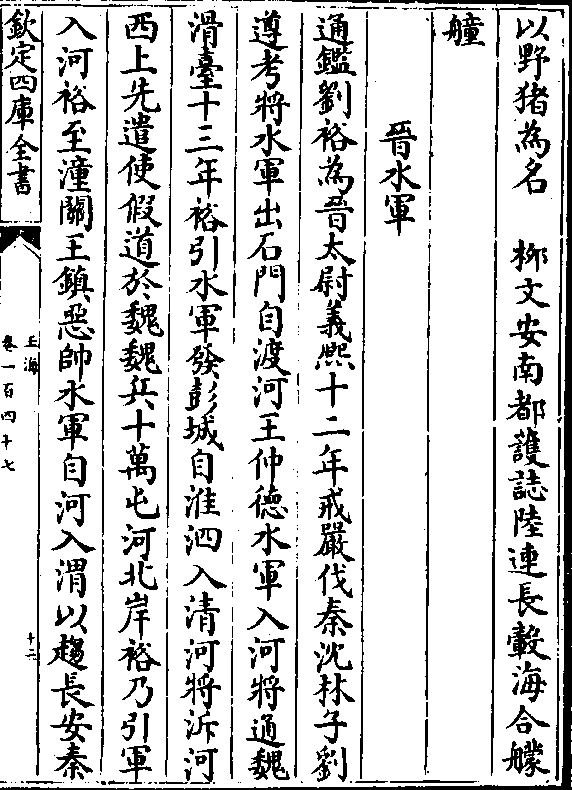 以野猪為名　柳文安南都護誌陸連長轂海合艨
艟
晉水軍
通鑑劉裕為晉太尉義熈十二年戒嚴伐秦沈林子劉
遵考將水軍出石門自渡河王仲德水軍入河將通魏
滑臺十三年裕引水軍發彭城自淮泗入清河將泝河
西上先遣使假道於魏魏兵十萬屯河北岸裕乃引軍
入河裕至潼關王鎮惡帥水軍自河入渭以趨長安秦
欽定四庫全書
玉海
卷一百四十七
十二